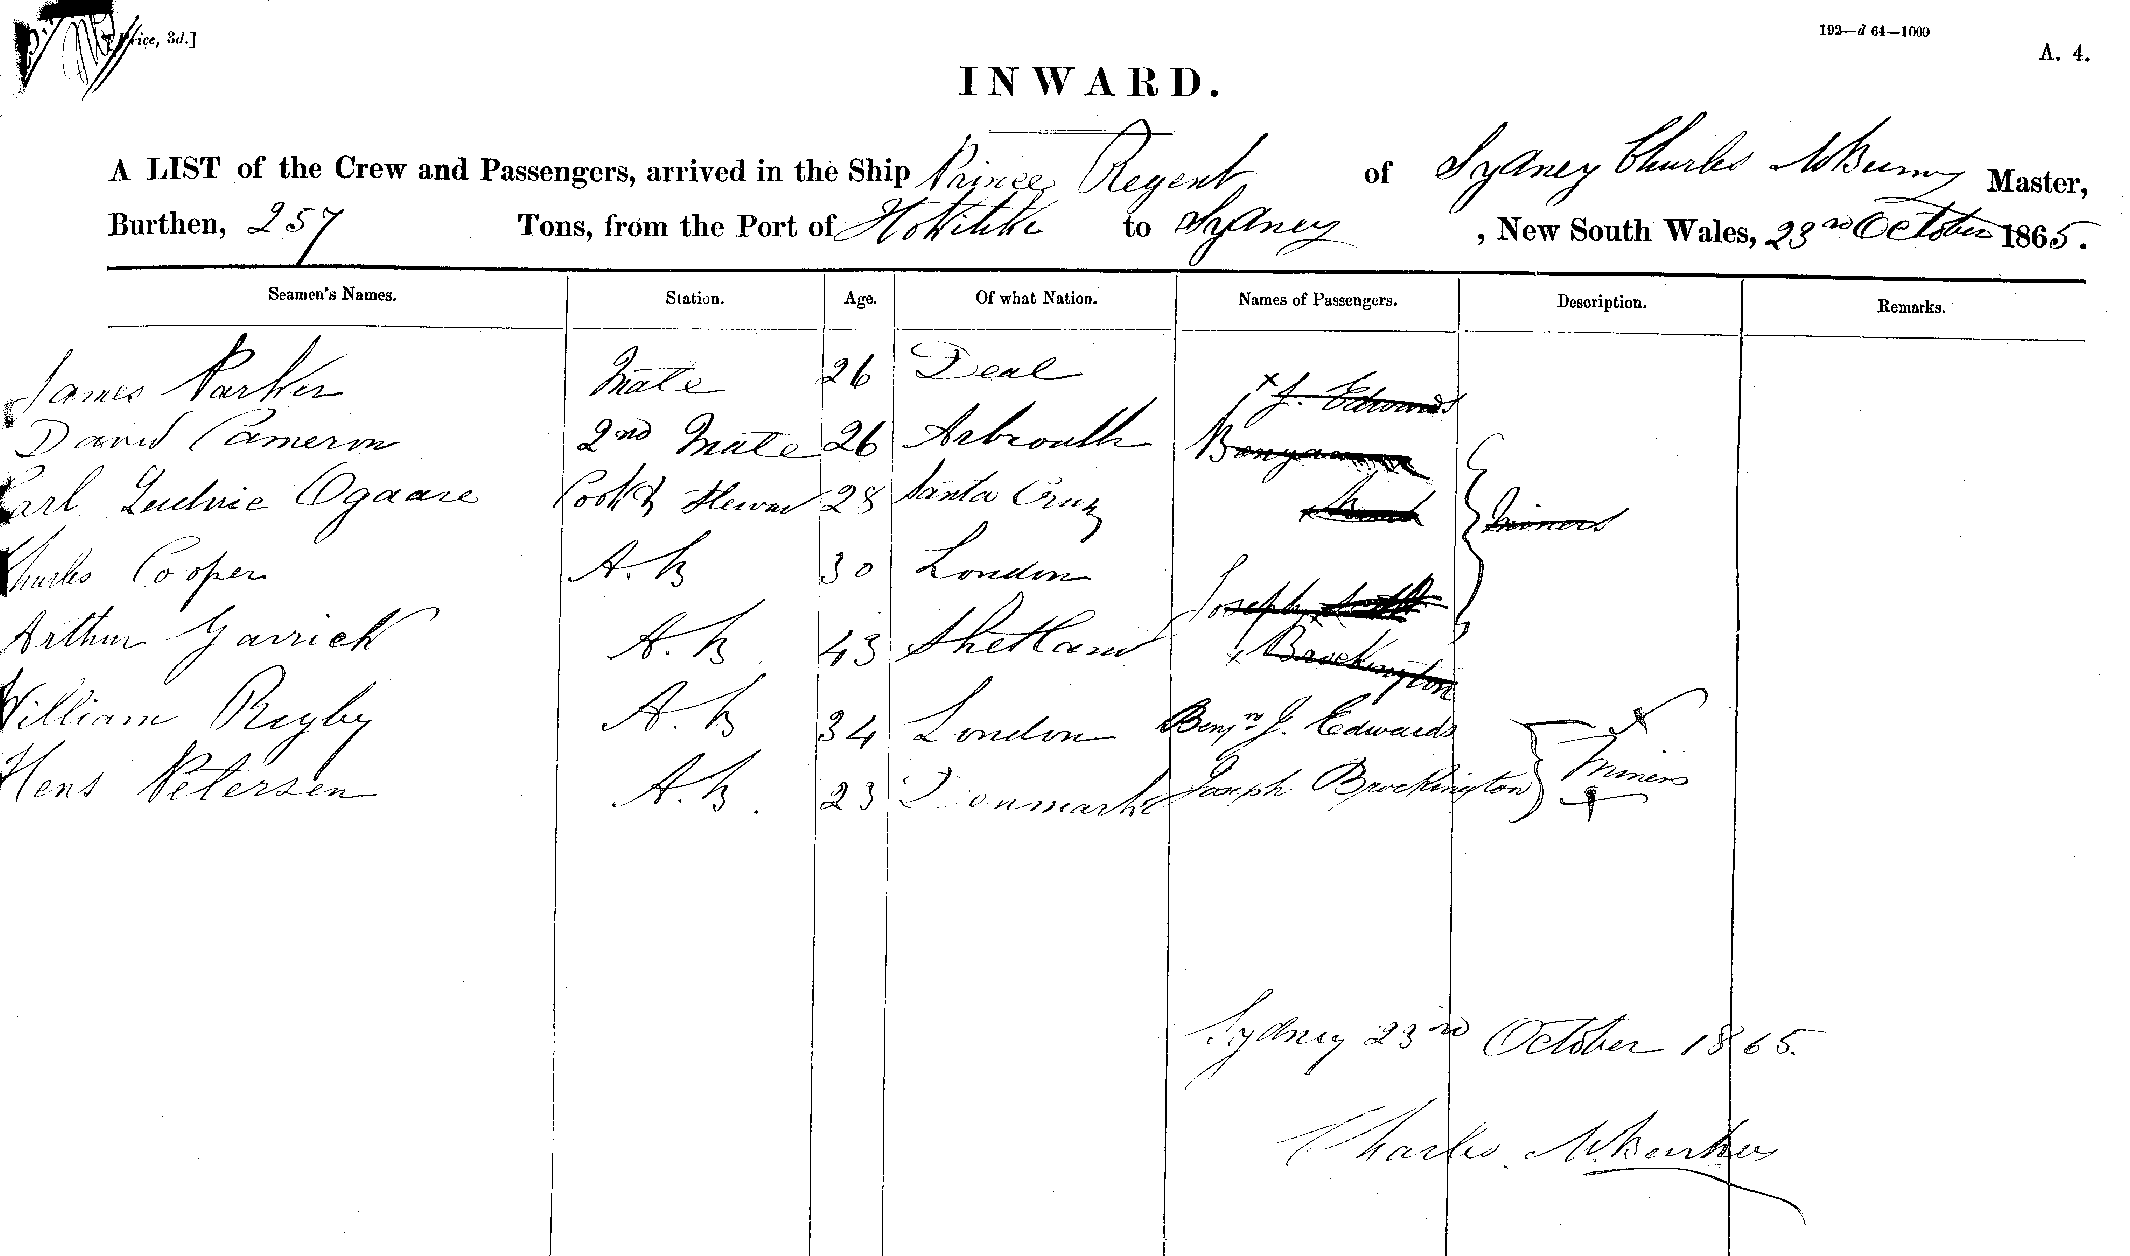 ice, 3d.]
192—d 64—1000
A. 4.
INWARD.
A LIST of the Crew and Passengers, arrived in the Ship Prince Regent of Sydney Charles Master,
Burthen, 257 Tons, from the Port of Hokitika to Sydney, New South Wales, 23rd October 1865.
Seamen's Names. Station. Age. Of what Nation. Names of Passengers. Description. Remarks.
James Parker Mate 26 Deal
J. Edwards
David Cameron 2nd Mate 26 Arbroath
Carl Ludvic Ogaare Cook & Steward 28 Santa Cruz
Miners
Charles Cooper A.B 30 London
Joseph
Arthur Garrick A.B 43 Shetland
Brockington
William Rigby A.B 34 London Benjn J. Edwards
Miners
Hens Petersen A.B. 23 Denmark Joseph Brockington
Sydney 23rd October 1865.
Charles